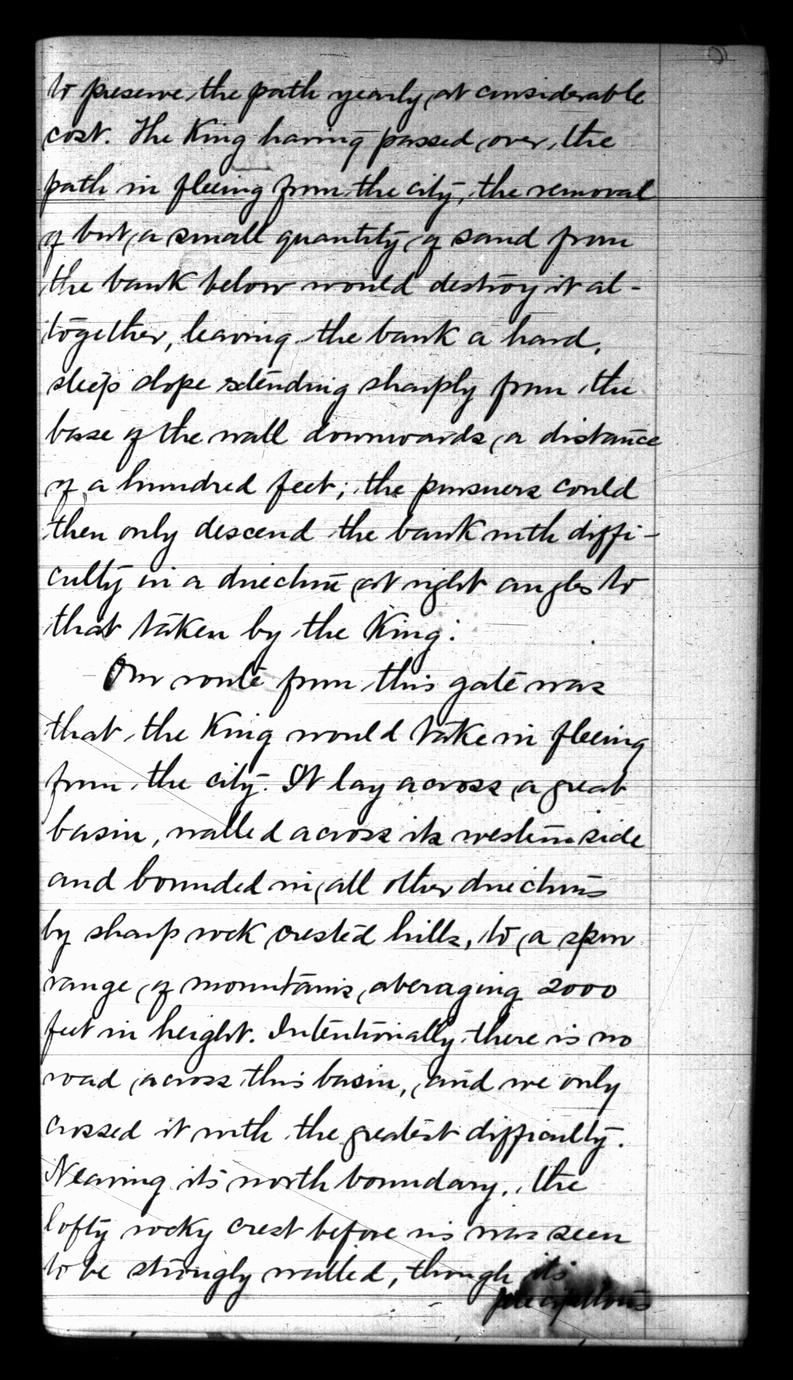 to preserve the path yearly at considerable
cost. The King having passed over, the
path in fleeing from the city, the removal
of but a small quantity of sand from
the bank below would destroy it al-
together, leaving the bank a hard,
steep slope extending sharply from the
base of the wall downwards, a distance
of a hundred feet; the pursuers could
then only descend the bank with diffi-
culty in a direction at right angles to
that taken by the King.
Our route from this gate was
that the King would take in fleeing
from the city. It lay across a great
basin, walled across its western side
and bounded in all other directions
by sharp rock crested hills, to a spur
range of mountains, averaging 2000
feet in height. Intentionally there is no
road across this basin, and we only
crossed it with the greatest difficulty.
Nearing its north boundary, the
lofty rocky crest before us was seen
to be strongly walled, though its
precipitous